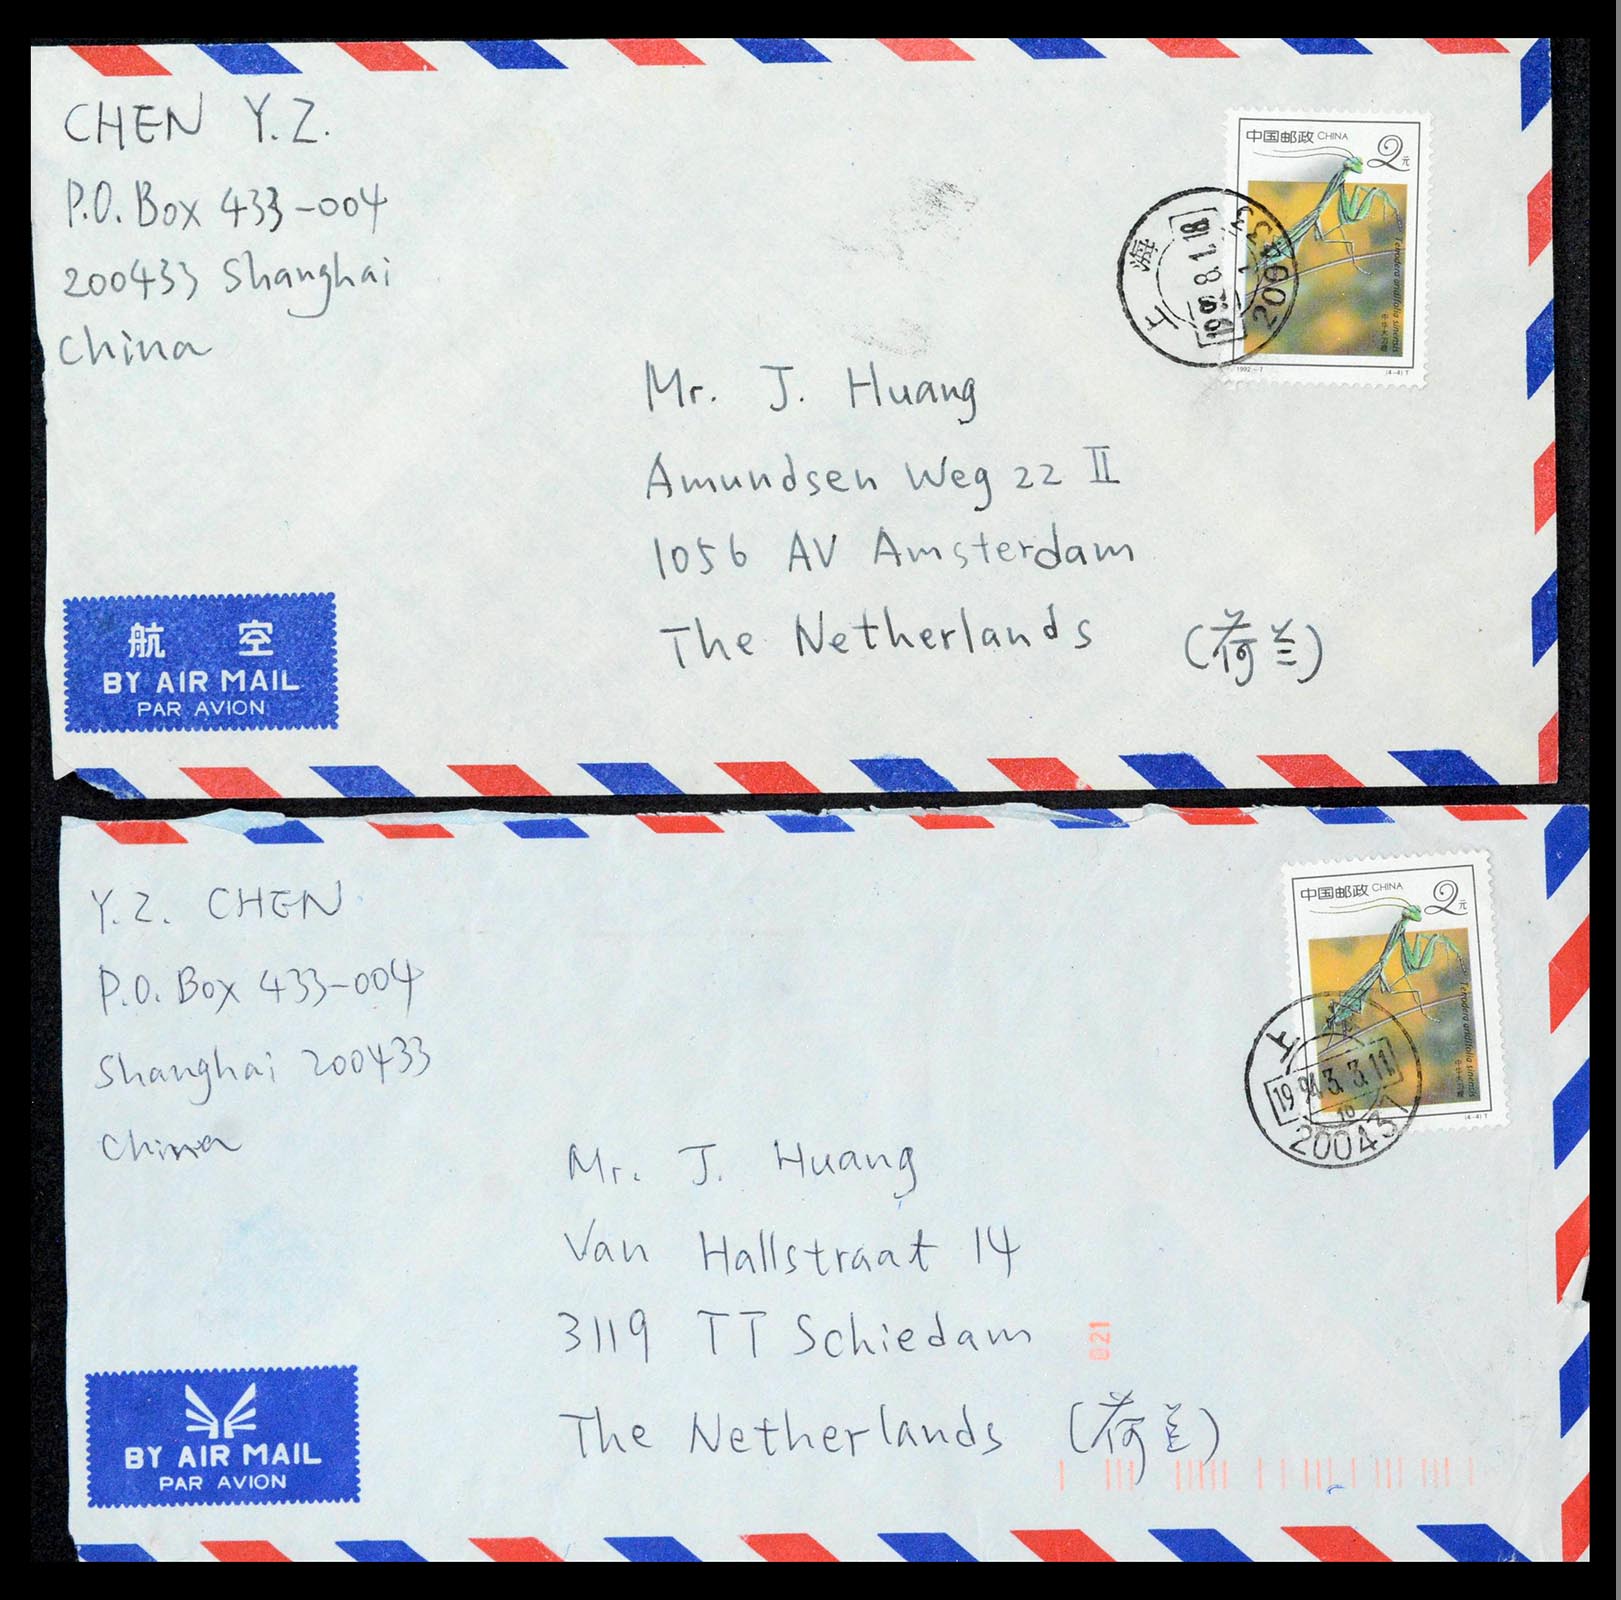 CHEN Y.Z.
P.O. Box 433-004
200433 Shanghai
China
中国邮政 CHINA
2元
Tenodera aridifolia sinensis
1992-7
(4-4)T
上海
1992.8.1.18
Mr. J. Huang
Amundsen Weg 22 II
1056 AV Amsterdam
The Netherlands (荷兰)
航空
BY AIR MAIL
PAR AVION
Y.Z. CHEN
P.O. Box 433-004
Shanghai 200433
China
中国邮政 CHINA
2元
Tenodera aridifolia sinensis
(4-4)T
上
1994.3.3.11
10
20043
Mr. J. Huang
Van Hallstraat 14
3119 TT Schiedam
021
The Netherlands (荷兰)
BY AIR MAIL
PAR AVION